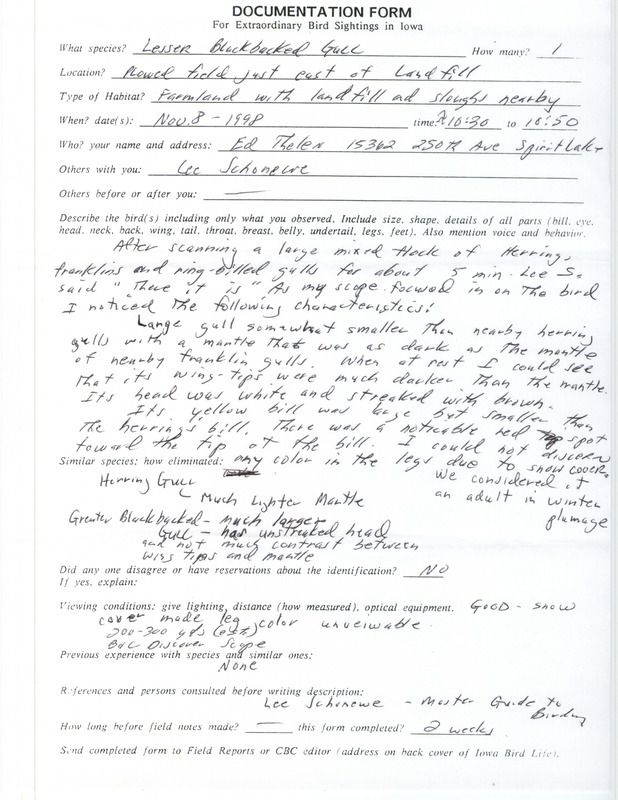 DOCUMENTATION FORM
For Extraordinary Bird Sightings in Iowa
What species? Lesser Blackbacked Gull How many? 1
Location? Plowed field just east of Landfill
Type of Habitat? Farmland with landfill ad sloughs nearby
When? date(s): Nov. 8 - 1998 time: 10:30 to 10:50
Who? your name and address: Ed Thelen 15362 250th Ave Spirit Lake
Others with you: Lee Schoenewe
Others before or after you: —
Describe the bird(s) including only what you observed. Include size, shape, details of all parts (bill, eye,
head, neck, back, wing, tail, throat, breast, belly, undertail, legs, feet). Also mention voice and behavior.
After scanning a large mixed flock of Herring,
franklins and ring-billed gulls for about 5 min. Lee S.
said "There it is" As my scope focused in on the bird
I noticed the following characteristics:
Large gull somewhat smaller than nearby herring
gulls with a mantle that was as dark as the mantle
of nearby franklin gulls. When at rest I could see
that its wing-tips were much darker than the mantle.
Its head was white and streaked with brown.
Its yellow bill was large but smaller than
the herring's bill. There was a noticable red spot
toward the tip of the bill. I could not discern
Similar species; how eliminated: any color in the legs due to snow cover.
Herring Gull We considered it
Much Lighter Mantle an adult in winter
plumage
Greater Blackbacked - much larger
Gull - has unstreaked head
and not much contrast between
wing tips and mantle
Did any one disagree or have reservations about the identification? No
If yes, explain:
Viewing conditions: give lighting, distance (how measured), optical equipment. Good - snow
cover made leg color unveiwable.
200-300 yds (est)
B&L Discover Scope
Previous experience with species and similar ones:
None
References and persons consulted before writing description:
Lee Schoenewe - Master Guide to
Birding
How long before field notes made? — this form completed? 2 weeks
Send completed form to Field Reports or CBC editor (address on back cover of Iowa Bird Life).